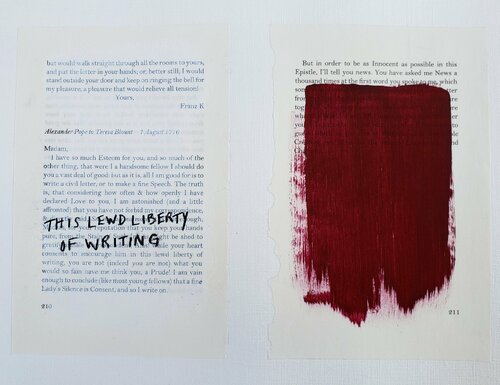 but would walk straight through all the rooms to yours,
and put the letter in your hands, or, better still, I would
stand outside your door and keep on ringing the bell for
my pleasure, a pleasure that would relieve all tension!
Yours,
Franz K
Alexander Pope to Teresa Blount 7 August 1716
Madam,
I have so much Esteem for you, and so much of the
other thing, that were I a handsome fellow I should do
you a vast deal of good: but as it is, all I am good for is to
write a civil letter, or to make a fine Speech. The truth
is, that considering how often & how openly I have
declared Love to you, I am astonished (and a little
affronted) that you have not forbid my correspondence,
THIS LEWD LIBERTY
OF WRITING
your heart
consents to encourage him in this lewd liberty of
writing, you are not (indeed you are not) what you
would so fain have me think you, a Prude! I am vain
enough to conclude (like most young fellows) that a fine
Lady's Silence is Consent, and so I write on.
210
But in order to be as Innocent as possible in this
Epistle, I'll tell you news. You have asked me News a
thousand times at the first word you spoke to me, which
211